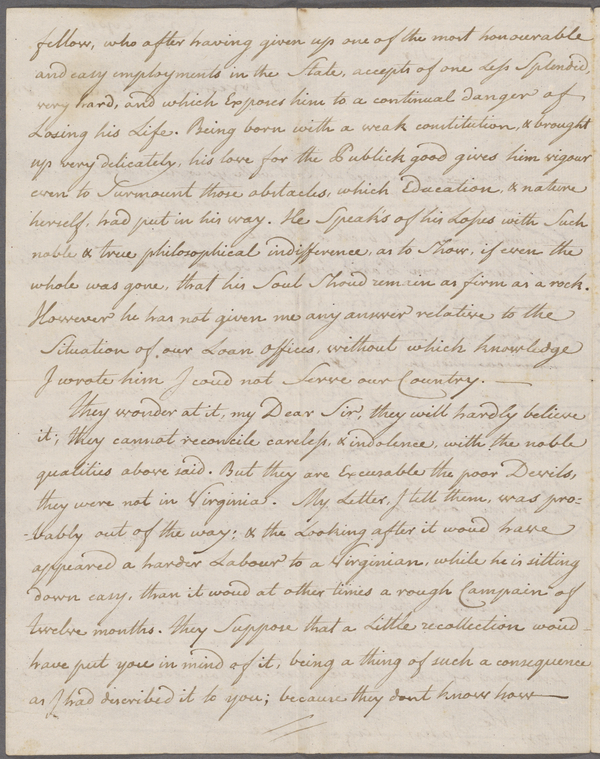 fellow, who after having given up one of the most honourable
and easy employments in the State, accepts of one Less Splendid,
very hard, and which Exposes him to a continual danger of
Losing his Life. Being born with a weak constitution, & brought
up very delicately, his love for the Publick good gives him vigour
even to Surmount those obstacles, which Education, & nature
herself, had put in his way. He Speaks of his Loses with Such
noble & true philosophical indifference, as to Show, if even the
whole was gone, that his Soul Shoud remain as firm as a rock.
However he has not given me any answer relative to the
Situation of our Loan offices, without which knowledge
I wrote him I coud not Serve our Country. —
They wonder at it, my Dear Sir, they will hardly believe
it; they cannot reconcile careless, & indolence, with the noble
qualities above said. But they are Excusable the poor Devils,
they were not in Virginia. My Letter, I tell them, was pro=
=bably out of the way; & the Looking after it woud have
appeared a harder Labour to a Virginian, while he is sitting
down easy, than it woud at other times a rough Campain of
twelve months. They Suppose that a Little recollection woud
have put you in mind of it, being a thing of such a consequence
as I had discribed it to you; because they dont know how —